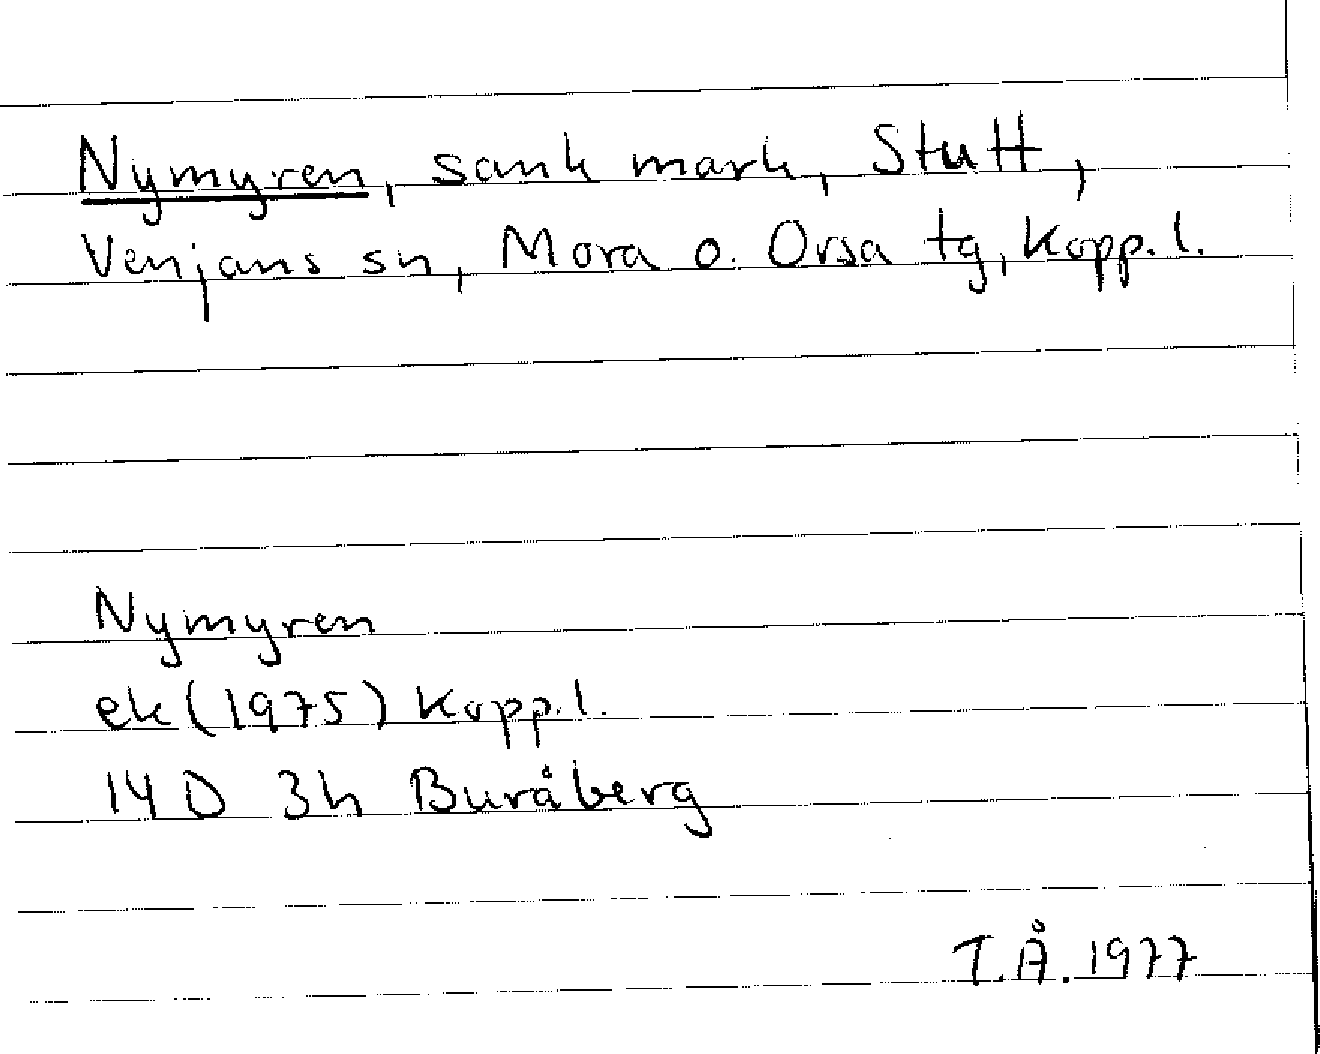 Nymyren, sank mark, Stutt,
Venjans sn, Mora o. Orsa tg, Kopp. l.
Nymyren
ek (1975) Kopp. l.
14 D 3h Buråberg
T.Å. 1977